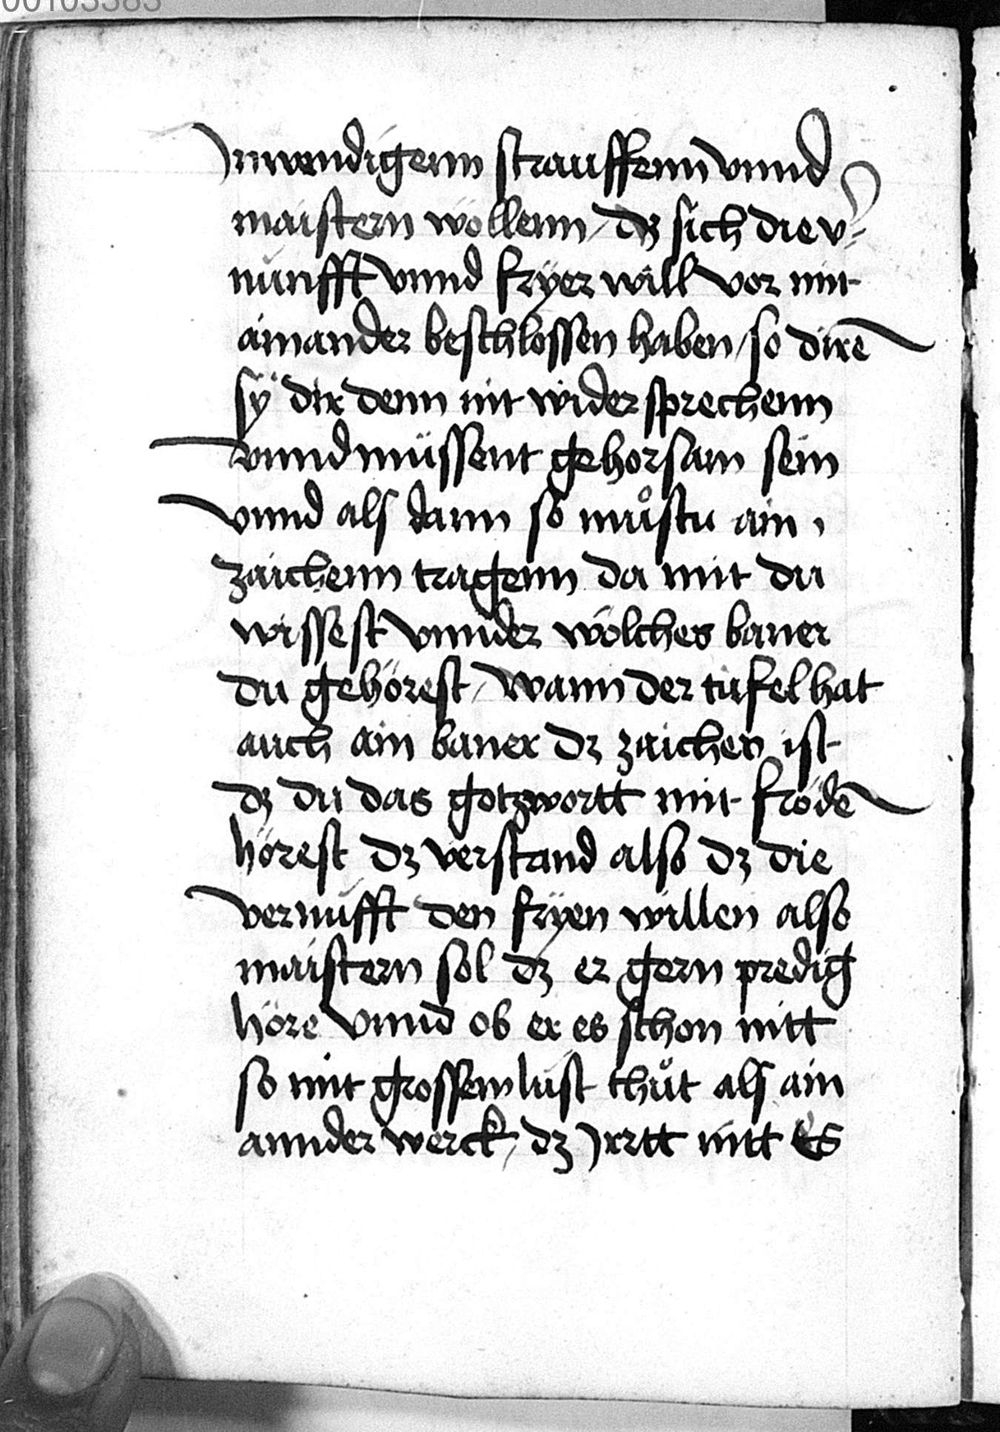 00103383
Jnwendigenn strauffenn vnnd
maistern wöllenn / dz sich die v̾=
nunfft vnnd fryer will vor mit
ainander beschlossen haben / so dirē
sÿ dir denn nit wider sprechenn
vnnd müssent gehorsam sein
vnnd als dann so mu̇stu ain
zaichenn tragenn da mit du
wissest vnnder wölches baner
du gehörest / wann der tüfel hat
auch ain baner dz zaichen ist
dz du das gotzwortt mit frödē
hörest dz verstand also dz die
vernüfft den fryen willen also
maistern sol dz er gern predig
höre vnnd ob er es schon nitt
so mit grossem lust thůt als ain
annder werck / dz Jrrtt nitt Es